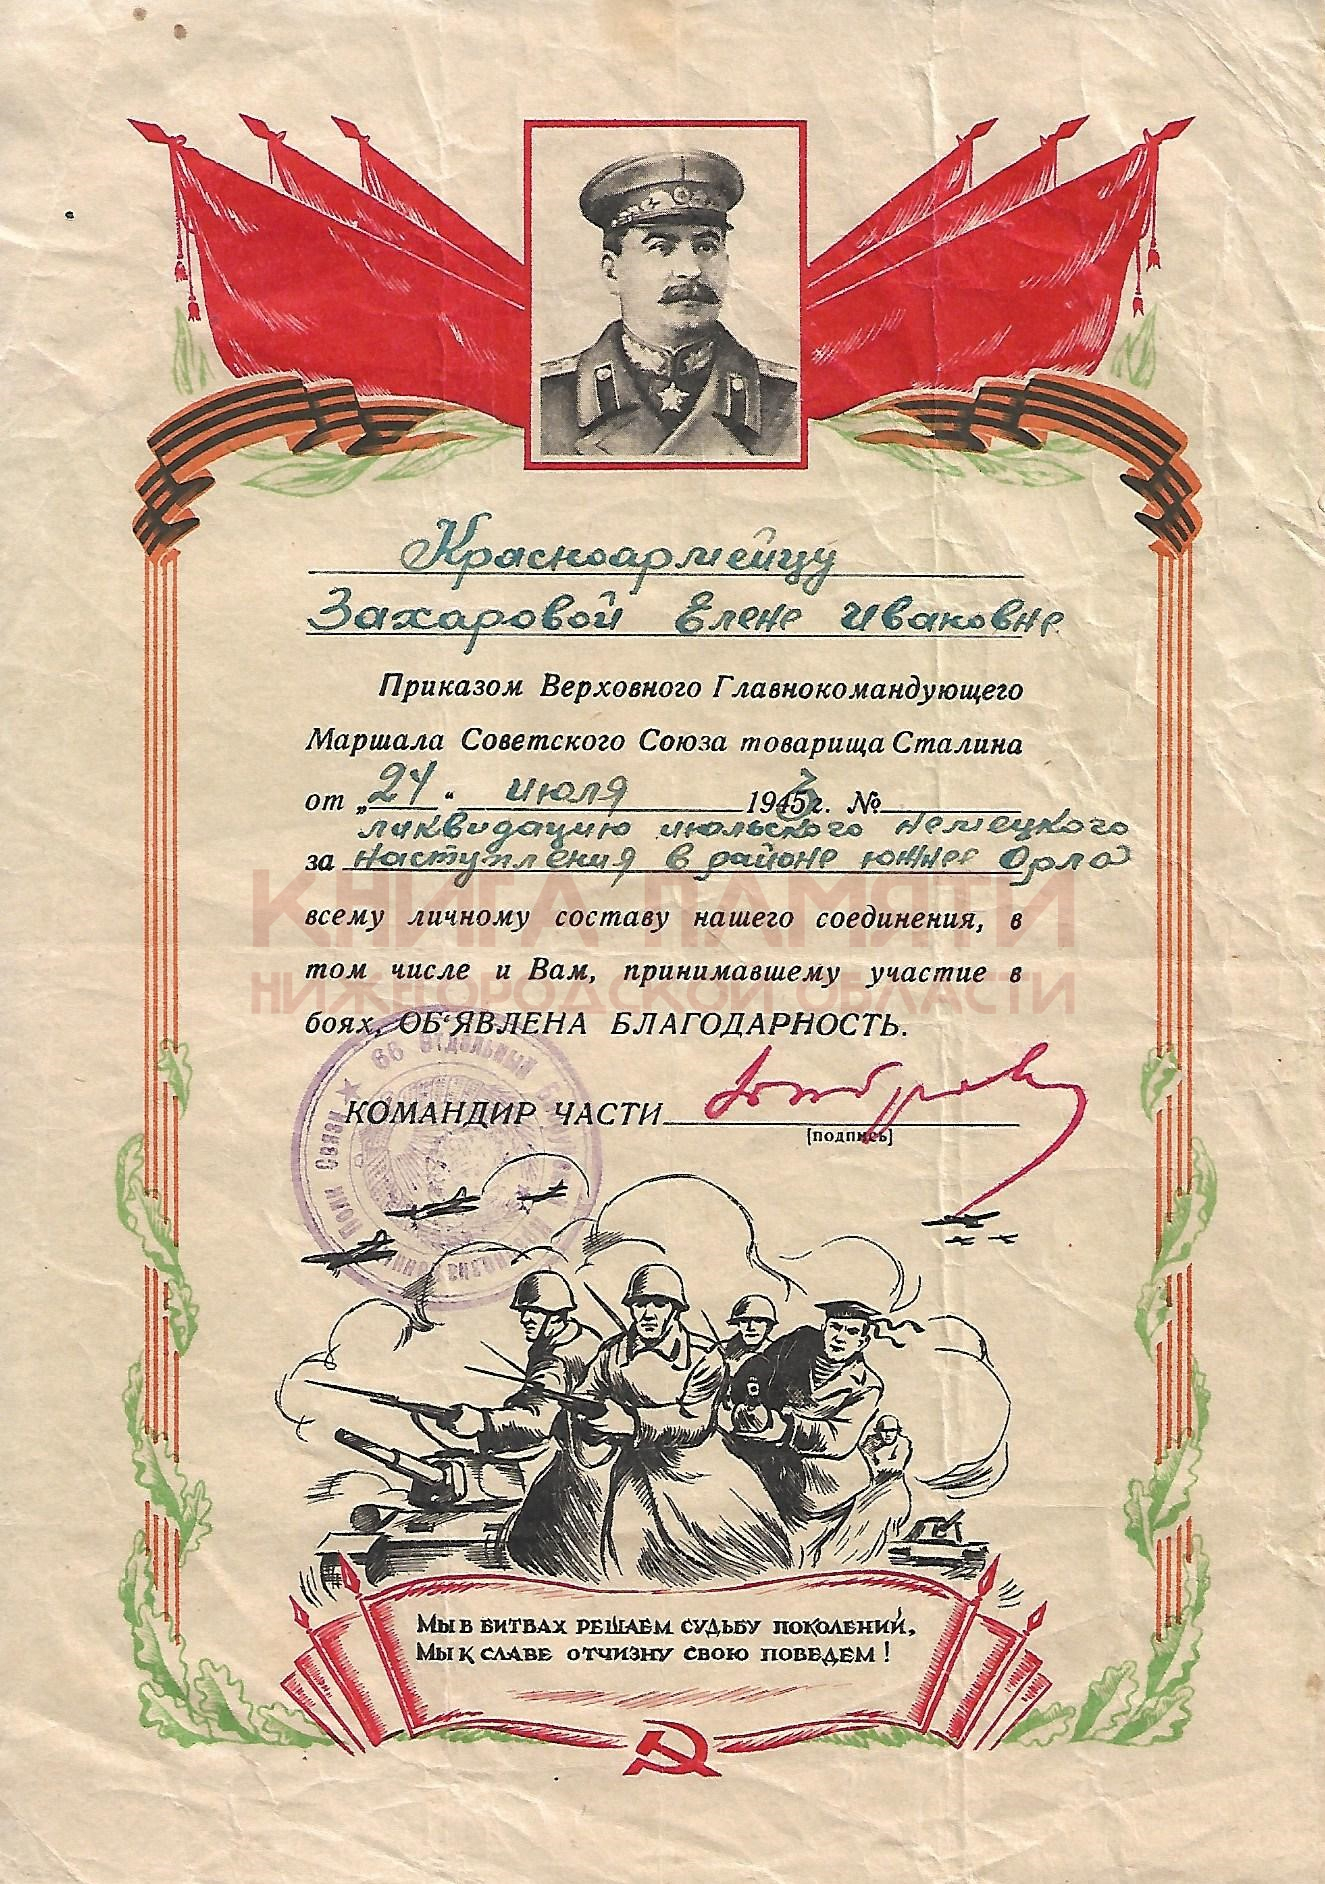 Красноармейцу
Захаровой Елене Ивановне
Приказом Верховного Главнокомандующего
Маршала Советского Союза товарища Сталина
от „24“ июля 1943 г. №
ликвидацию июльского немецкого
за наступления в районе южнее Орла
КНИГА ПАМЯТИ
всему личному составу нашего соединения, в
том числе и Вам, принимавшему участие в
НИЖЕГОРОДСКОЙ ОБЛАСТИ
боях, ОБ'ЯВЛЕНА БЛАГОДАРНОСТЬ.
66 Отдельный
Полк Связи
КОМАНДИР ЧАСТИ
[подпись]
Мы в битвах решаем судьбу поколений,
Мы к славе отчизну свою поведем!